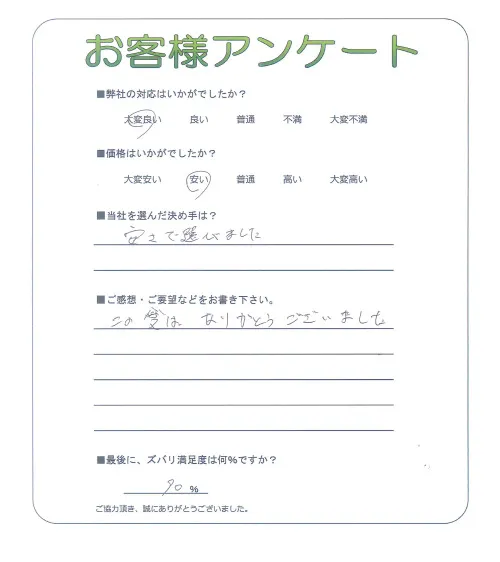 お客様アンケート
■弊社の対応はいかがでしたか？
大変良い 良い 普通 不満 大変不満
■価格はいかがでしたか？
大変安い 安い 普通 高い 大変高い
■当社を選んだ決め手は？
安さで選びました
■ご感想・ご要望などをお書き下さい。
この度は ありがとう ございました
■最後に、ズバリ満足度は何％ですか？
90 %
ご協力頂き、誠にありがとうございました。